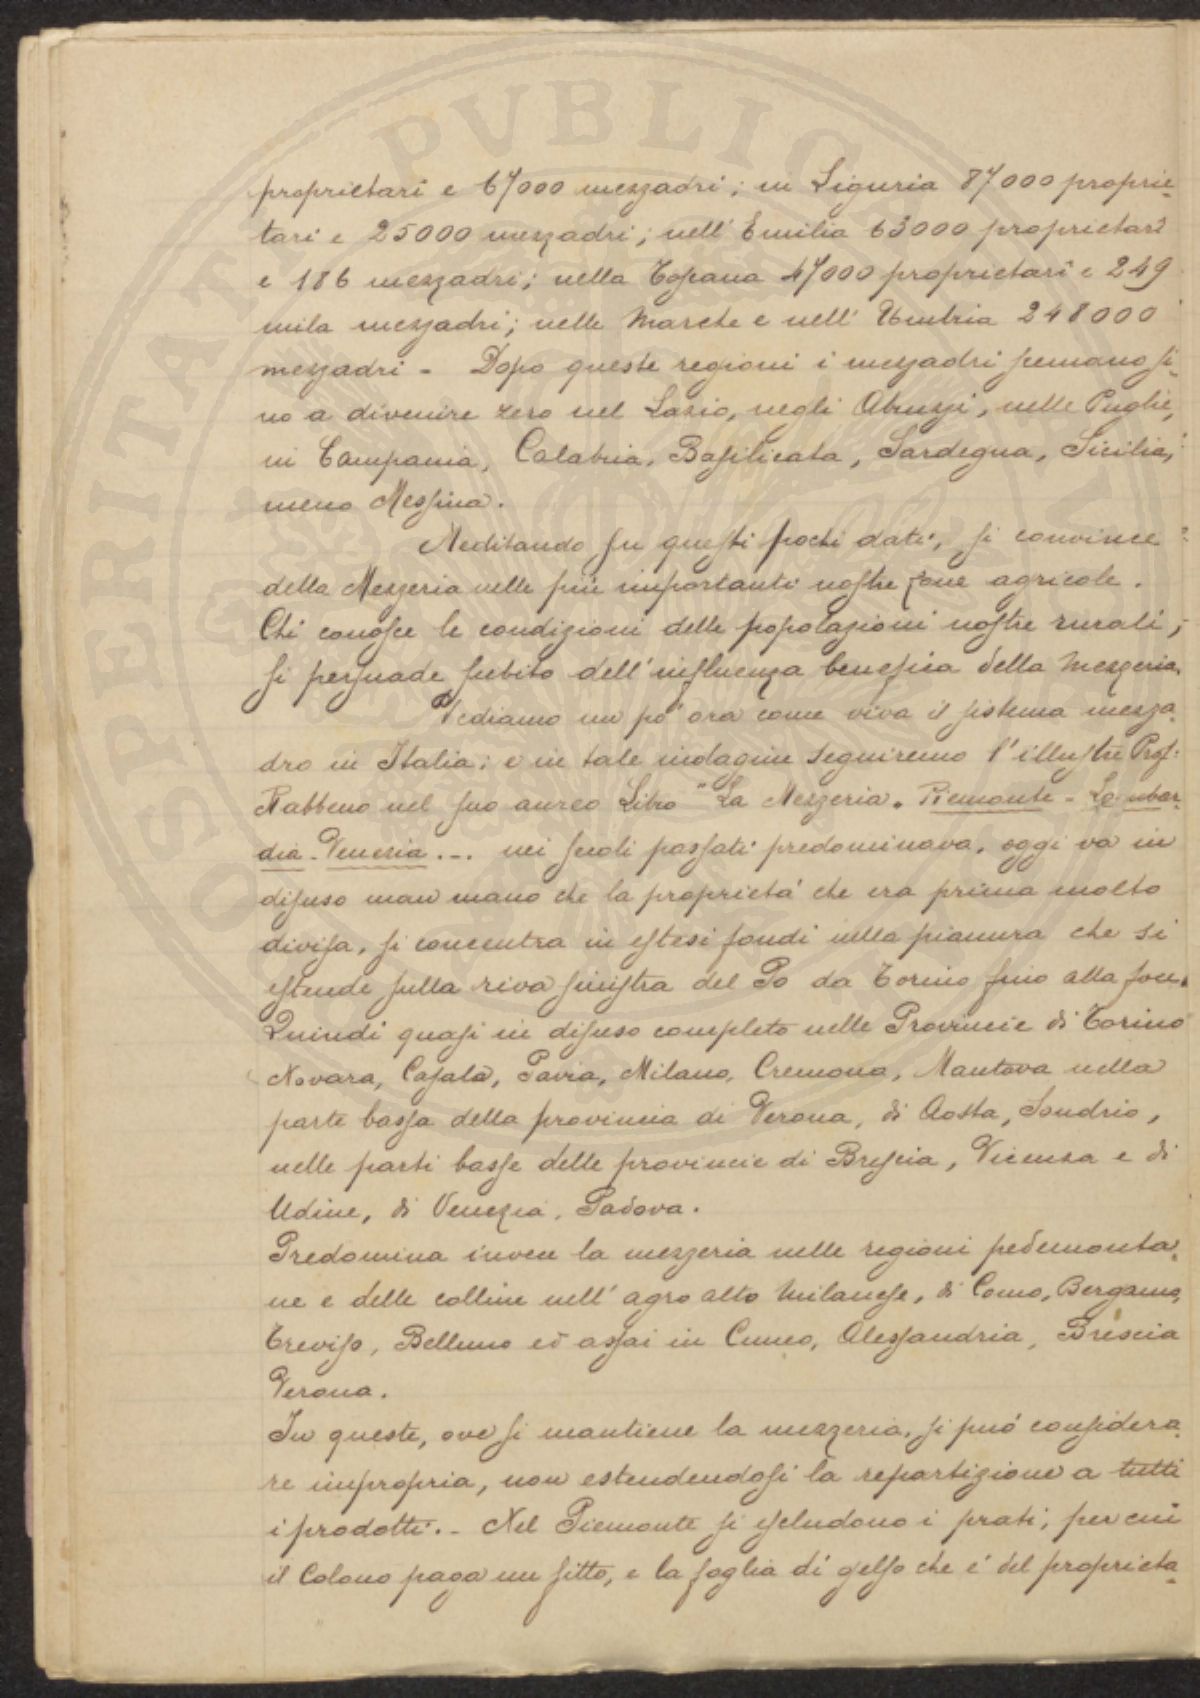 PROSPERITATI PUBLICAE
proprietari e 67000 mezzadri; in Liguria 87000 proprie-
tari e 25000 mezzadri; nell' Emilia 63000 proprietari
e 186 mezzadri; nella Toscana 47000 proprietari e 249
mila mezzadri; nelle Marche e nell' Umbria 248000
mezzadri - Dopo queste regioni i mezzadri scemano si-
no a divenire zero nel Lazio, negli Abruzzi, nelle Puglie,
in Campania, Calabria, Basilicata, Sardegna, Sicilia,
meno Messina.
Meditando su questi pochi dati, si convince
della Mezzeria nelle più importanti nostre zone agricole.
Chi conosce le condizioni delle popolazioni nostre rurali,
si persuade subito dell' influenza benefica della Mezzeria.
Vediamo un pò ora come viva il sistema mezza-
dro in Italia: e in tale indagine seguiremo l' illustre Prof.
Rabbeno nel suo aureo Libro "La Mezzeria". Piemonte - Lombar-
dia - Venezia ... nei secoli passati predominava, oggi va in
disuso man mano che la proprietà che era prima molto
divisa, si concentra in estesi fondi nella pianura che si
estende sulla riva sinistra del Po da Torino fino alla foce.
Quindi quasi in disuso completo nelle Provincie di Torino
Novara, Casala, Pavia, Milano, Cremona, Mantova nella
parte bassa della provincia di Verona, di Aosta, Sondrio,
nelle parti basse delle provincie di Brescia, Vicenza e di
Udine, di Venezia, Padova.
Predomina invece la mezzeria nelle regioni pedemonta-
ne e delle colline nell' agro alto Milanese, di Como, Bergamo,
Treviso, Belluno ed assai in Cuneo, Alessandria, Brescia
Verona.
In queste, ove si mantiene la mezzeria, si può considera-
re impropria, non estendendosi la repartizione a tutti
i prodotti. - Nel Piemonte si escludono i prati, per cui
il Colono paga un fitto, e la foglia di gelso che è del proprieta-